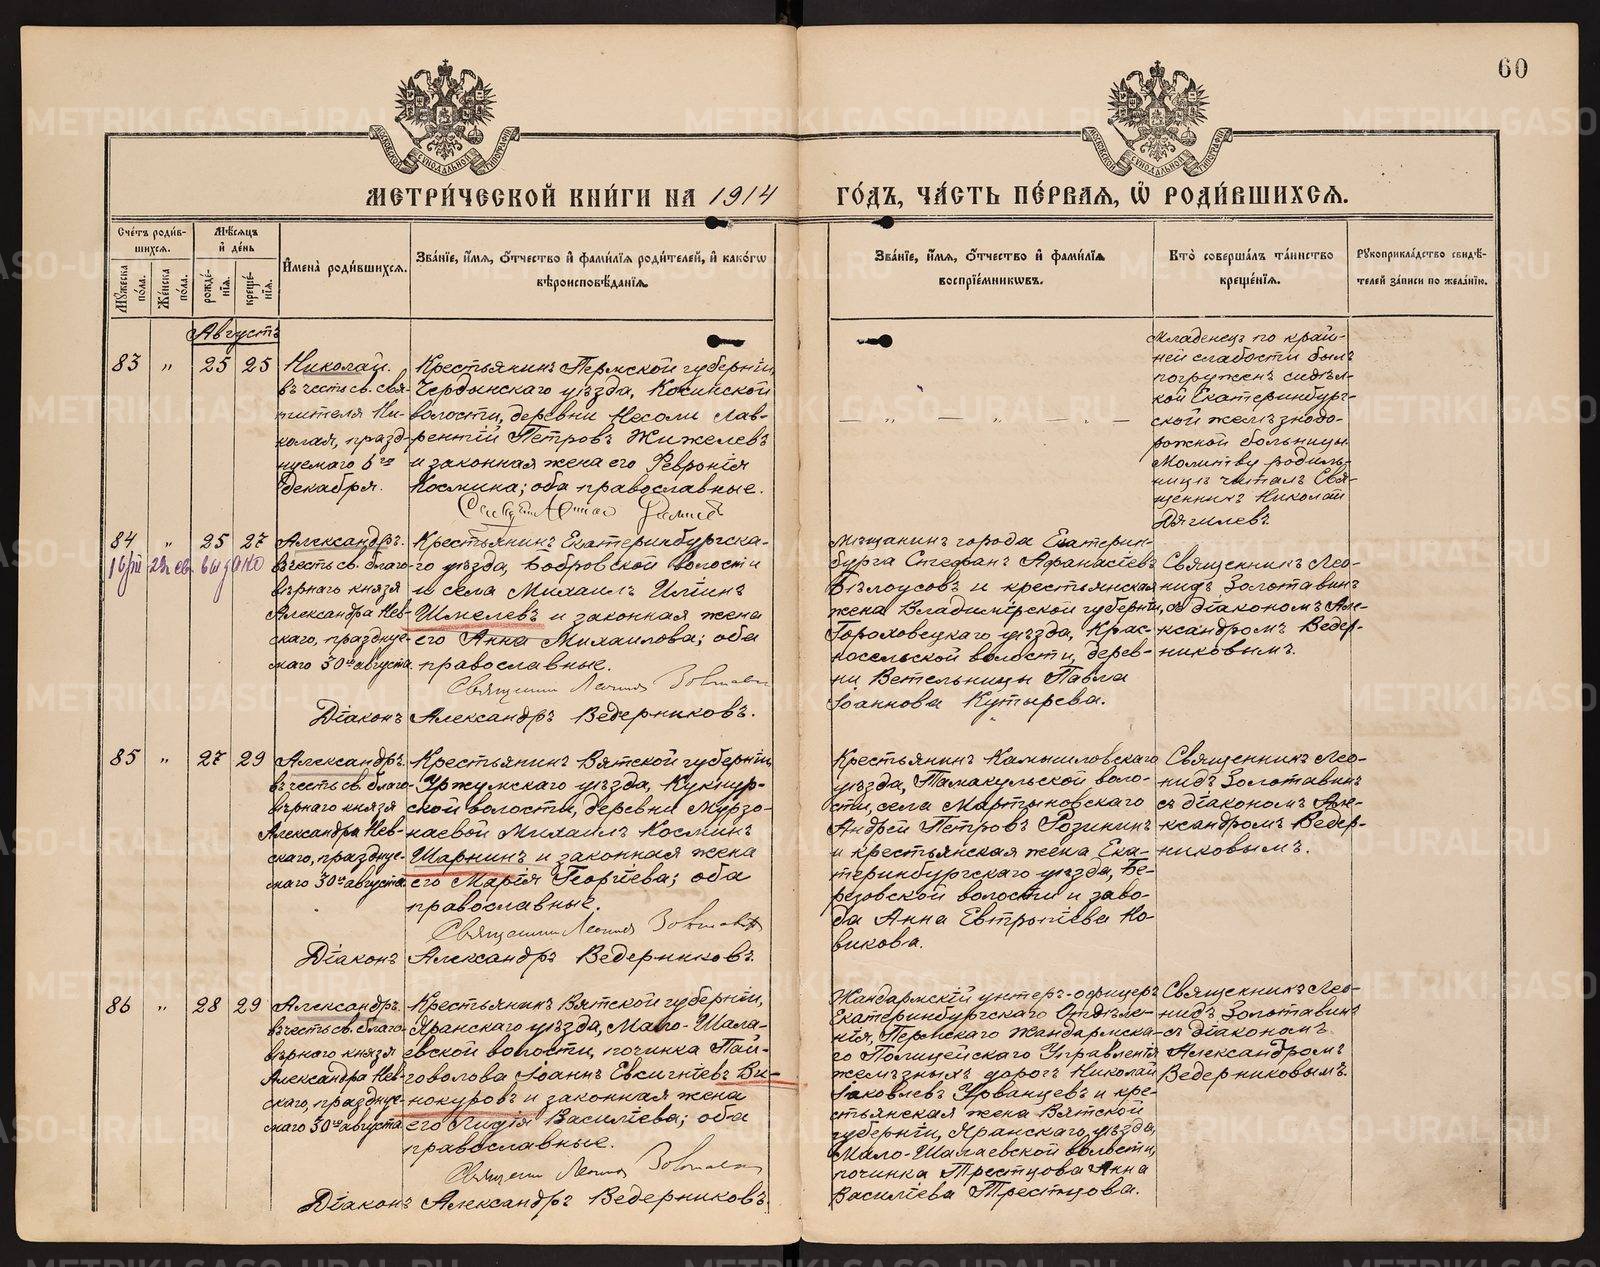 60
МОСКОВСКОЙ СѴНОДАЛЬНОЙ ТИПОГРАФІИ
МОСКОВСКОЙ СѴНОДАЛЬНОЙ ТИПОГРАФІИ
МЕТРИ́ЧЕСКОЙ КНИ́ГИ НА 1914
ГО́ДЪ, ЧА́СТЬ ПЕ́РВАѦ, Ѡ҆ РОДИ́ВШИХСѦ.
Сче́тъ роди́в-
шихсѧ.
Мꙋ́жеска по́ла.
Же́нска по́ла.
Мѣ́сѧцъ
и҆ де́нь
рожде́-
нїѧ.
креще́-
нїѧ.
И҆мена̀ роди́вшихсѧ.
Зва́нїе, и҆́мѧ, ѻ҆́тчество и҆ фами́лїѧ роди́телей, и҆ како́гѡ
вѣроисповѣ́данїѧ.
Зва́нїе, и҆́мѧ, ѻ҆́тчество и҆ фами́лїѧ
воспрїе́мникѡвъ.
Кто̀ соверша́лъ та́инство
креще́нїѧ.
Рꙋкоприкла́дство свидѣ́-
телей за́писи по жела́нїю.
Августъ
83 " 25 25
Николай.
въ честь св. свя-
тителя Ни-
колая, празд-
нуемаго 6го
декабря.
Крестьянинъ Пермской губерніи,
Чердынскаго уѣзда, Косинской
волости, деревни Несоли Лав-
рентій Петровъ Жижелевъ
и законная жена его Февронія
Космина; оба православные.
— " — " — " —
Младенецъ по край-
ней слабости былъ
погруженъ сидѣл-
кой Екатеринбург-
ской желѣзнодо-
рожной больницы.
Молитву родиль-
ницѣ читалъ Свя-
щенникъ Николай
Дягилевъ.
84 " 25 27
выдано
Александръ.
въ честь св. благо-
вѣрнаго князя
Александра Нев-
скаго, праздну-
маго 30го августа
Крестьянинъ Екатеринбургска-
го уѣзда, Бобровской волости
и села Михаилъ Иліинъ
Шмелевъ и законная жена
его Анна Михаилова; оба
православные.
Священникъ Леонидъ Золотавинъ
Діаконъ Александръ Ведерниковъ.
Мѣщанинъ города Екатерин-
бурга Стефанъ Афанасіевъ
Бѣлоусовъ и крестьянская
жена Владимірской губерніи,
Гороховецкаго уѣзда, Крас-
носельской волости, дерев-
ни Ветельницы Павла
Іоаннова Кутырева.
Священникъ Лео-
нидъ Золотавинъ
съ діакономъ Але-
ксандромъ Ведер-
никовымъ.
85 " 27 29
Александръ.
въ честь св. благо-
вѣрнаго князя
Александра Нев-
скаго, праздну-
маго 30го августа
Крестьянинъ Вятской губерніи,
Уржумскаго уѣзда, Кукнур-
ской волости, деревни Мурзо-
наевой Михаилъ Косминъ
Шарнинъ и законная жена
его Марія Георгіева; оба
православные.
Священникъ Леонидъ Золотавинъ
Діаконъ Александръ Ведерниковъ.
Крестьянинъ Камышловскаго
уѣзда, Тамакульской воло-
сти, села Мартыновскаго
Андрей Петровъ Розининъ
и крестьянская жена Ека-
теринбургскаго уѣзда, Бе-
резовской волости и заво-
да Анна Евтропіева Но-
викова.
Священникъ Лео-
нидъ Золотавинъ
съ діакономъ Але-
ксандромъ Ведер-
никовымъ.
86 " 28 29
Александръ.
въ честь св. благо-
вѣрнаго князя
Александра Нев-
скаго, праздну-
маго 30го августа
Крестьянинъ Вятской губерніи,
Яранскаго уѣзда, Мало-Шала-
евской волости, починка Пай-
говолова Іоаннъ Евсигніевъ Ви-
нокуровъ и законная жена
его Лидія Василіева; оба
православные.
Священникъ Леонидъ Золотавинъ
Діаконъ Александръ Ведерниковъ.
Жандармскій унтеръ-офицеръ
Екатеринбургскаго Отдѣле-
нія, Пермскаго Жандармска-
го Полицейскаго Управленія
желѣзныхъ дорогъ Николай
Іаковлевъ Урванцевъ и кре-
стьянская жена Вятской
губерніи, Яранскаго уѣзда,
Мало-Шалаевской волости,
починка Трестцова Анна
Василіева Трестцова.
Священникъ Лео-
нидъ Золотавинъ
съ діакономъ
Александромъ
Ведерниковымъ.
METRIKI.GASO-URAL.RU